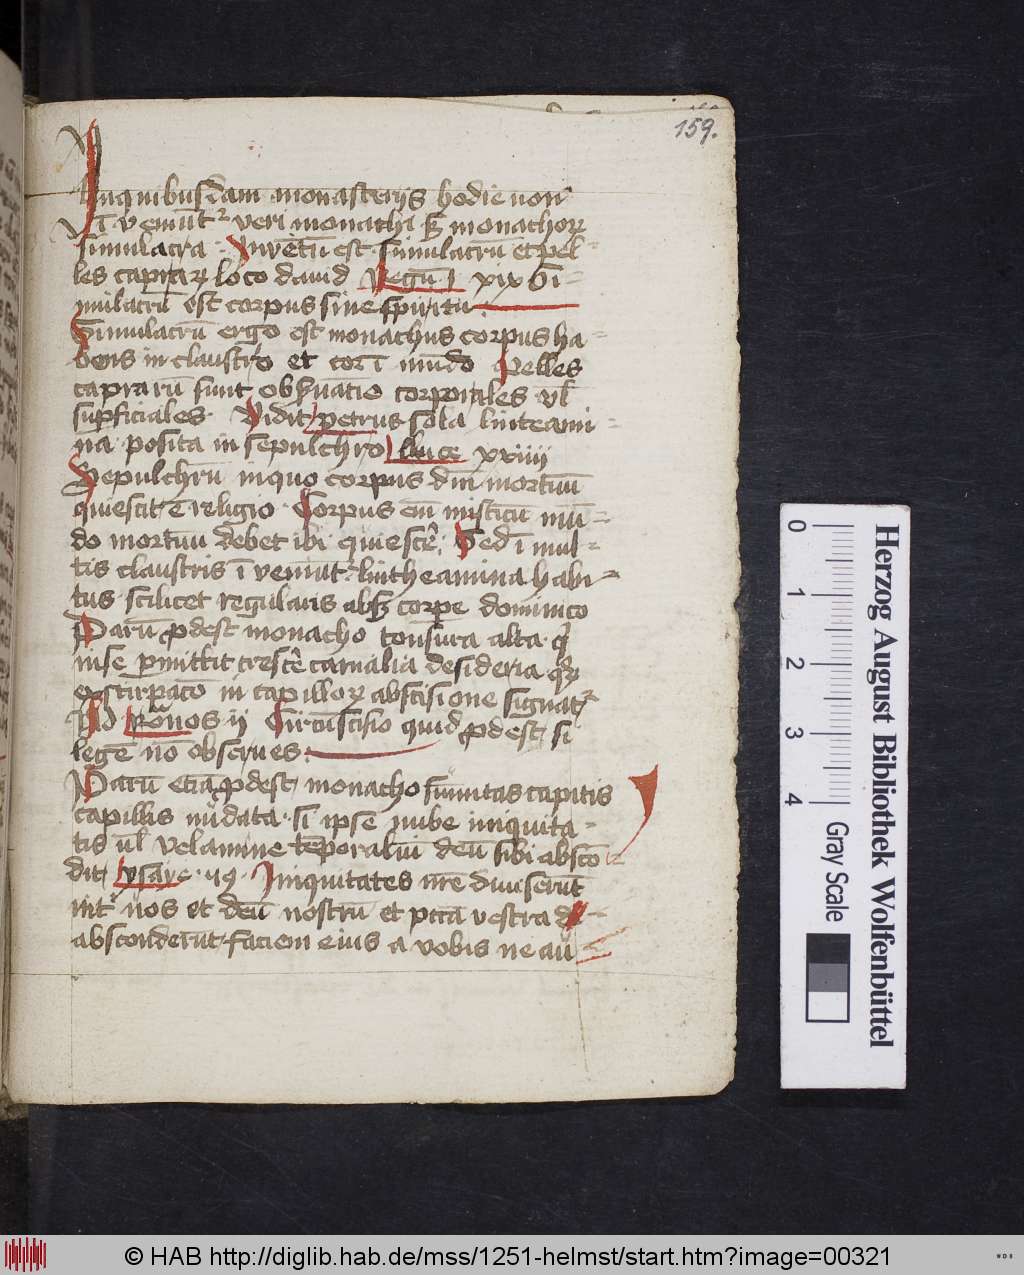 159.
In quibusdam monasterijs hodie non
i veniūt᷑ veri monachi sꝫ monachoꝝ
simulacra · Inventū est simulacrū et pel-
les capraꝝ loco david Regū j xix Si-
mulacrū est corpus sine spiritu ·
Simulacrū ergo est monachus corpus ha-
bens in claustro et cor ī mūdo Pelles
caprarū sunt obs̄uatio corporales vl̄
sup̄ficiales · Vidit petrus sola linteami-
na posita in sepulchro luce xxiiii
Sepulchrū in quo corpus dn̄i mortuū
quiescit ē religio · Corpus em̄ misticū mū-
do mortuū debet ibi quiescē̄ · Sed ī mul-
tis claustris ī veniūt᷑ lintheamina habi-
tus scilicet regularis absqꝫ corpe dominico
Parū ꝓdest monacho tonsura alta · qi̇
in se ꝑmittit crescē̄ carnalia desideria qꝝ
exstirpacō in capilloꝝ abscisione signat᷑
Ad Rōnos ij Circūscisio quid ꝓdest si
legē nō observes ·
Parū eciā ꝓdest monacho sūmitas capitis
capillis nūdata · si ipse nube iniquita-
tis vl̄ velamine tēporaliū deū sibi abscō-
dit ysaie · 49 · Iniquitates nr̄e diviserūt
int᷑ nos et deū nostrū et pctā vestra
absconderūt faciem eius a vobis ne au-
0 1 2 3 4
Gray Scale
Herzog August Bibliothek Wolfenbüttel
© HAB http://diglib.hab.de/mss/1251-helmst/start.htm?image=00321